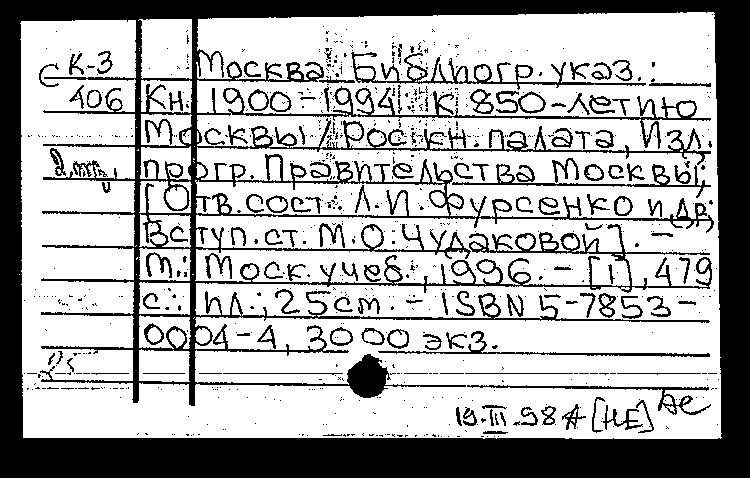 С К-3 Москва. Библиогр. указ.:
406 Кн. 1900-1994. К 850-летию
Москвы / Рос. кн. палата, Изд.
прогр. Правительства Москвы;
[Отв. сост. Л.И. Фурсенко и др.;
Вступ. ст. М.О. Чудаковой]. -
М.: Моск. учеб., 1996. - [1], 479
с.: ил.; 25 см. - ISBN 5-7853-
0004-4, 3000 экз.
19.III.98 [НЕ]